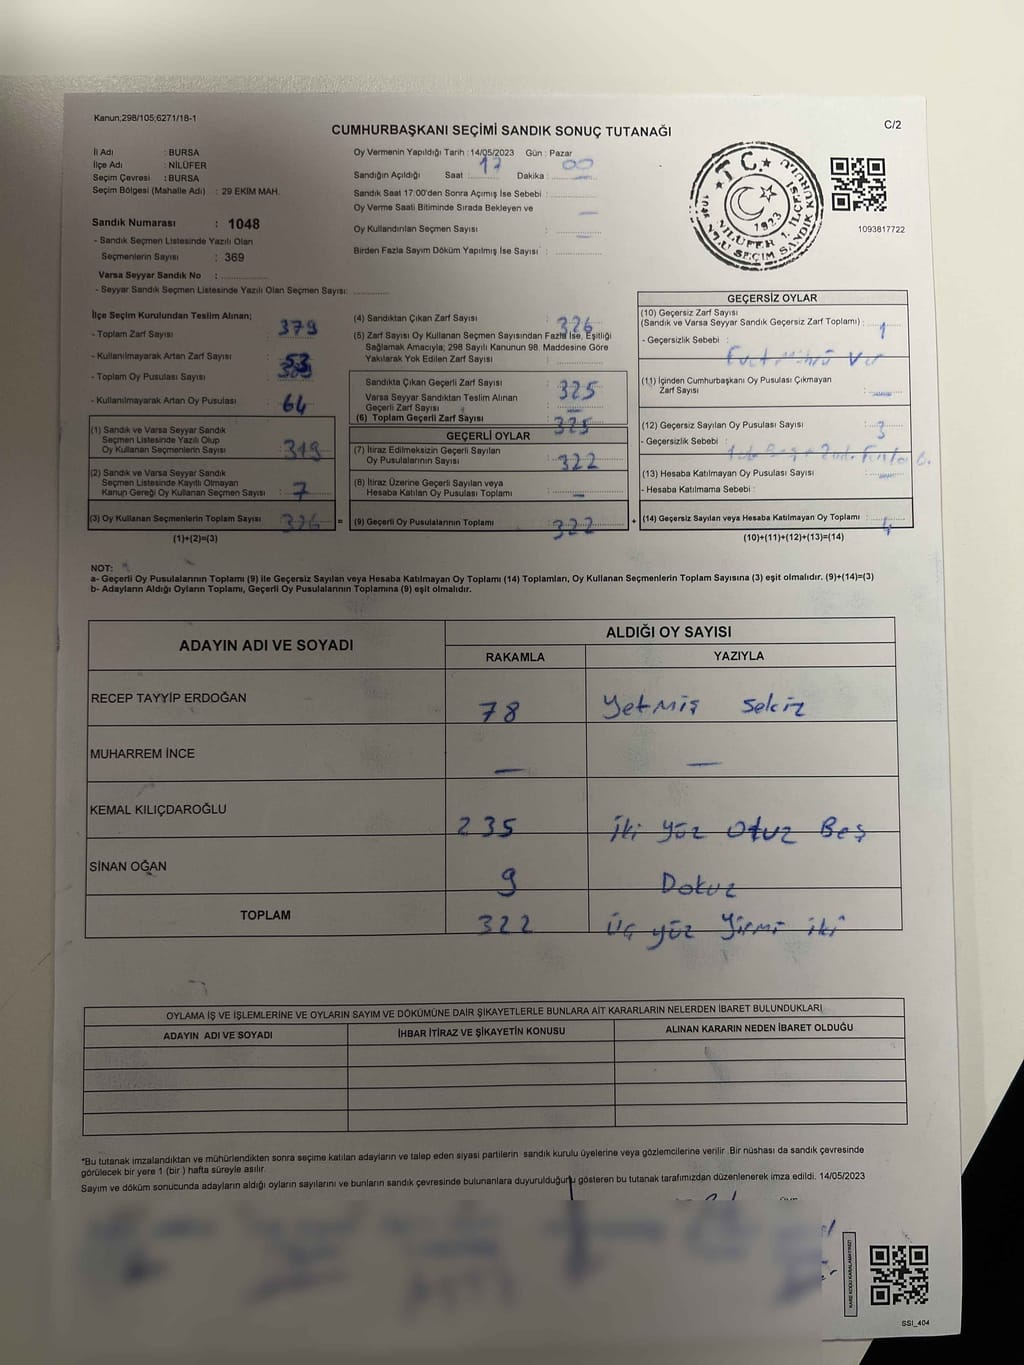 Kanun;298/105;6271/18-1
C/2
CUMHURBAŞKANI SEÇİMİ SANDIK SONUÇ TUTANAĞI
İl Adı : BURSA
İlçe Adı : NİLÜFER
Seçim Çevresi : BURSA
Seçim Bölgesi (Mahalle Adı) : 29 EKİM MAH.
Sandık Numarası : 1048
- Sandık Seçmen Listesinde Yazılı Olan
Seçmenlerin Sayısı : 369
Varsa Seyyar Sandık No :
- Seyyar Sandık Seçmen Listesinde Yazılı Olan Seçmen Sayısı:
Oy Vermenin Yapıldığı Tarih : 14/05/2023 Gün : Pazar
Sandığın Açıldığı Saat : 17 Dakika : 00
Sandık Saat 17:00'den Sonra Açımış İse Sebebi :
Oy Verme Saati Bitiminde Sırada Bekleyen ve
Oy Kullandırılan Seçmen Sayısı : —
Birden Fazla Sayım Döküm Yapılmış İse Sayısı : —
T.C.
1923
NİLÜFER 1. İLÇESİ
1048 NOLU SEÇİM SANDIK KURULU
1093817722
İlçe Seçim Kurulundan Teslim Alınan;
- Toplam Zarf Sayısı : 379
- Kullanılmayarak Artan Zarf Sayısı : 53
- Toplam Oy Pusulası Sayısı :
- Kullanılmayarak Artan Oy Pusulası : 64
(1) Sandık ve Varsa Seyyar Sandık
Seçmen Listesinde Yazılı Olup
Oy Kullanan Seçmenlerin Sayısı : 319
(2) Sandık ve Varsa Seyyar Sandık
Seçmen Listesinde Kayıtlı Olmayan
Kanun Gereği Oy Kullanan Seçmen Sayısı : 7
(3) Oy Kullanan Seçmenlerin Toplam Sayısı : 326
(1)+(2)=(3)
(4) Sandıktan Çıkan Zarf Sayısı : 326
(5) Zarf Sayısı Oy Kullanan Seçmen Sayısından Fazla İse, Eşitliği
Sağlamak Amacıyla; 298 Sayılı Kanunun 98. Maddesine Göre
Yakılarak Yok Edilen Zarf Sayısı :
Sandıkta Çıkan Geçerli Zarf Sayısı : 325
Varsa Seyyar Sandıktan Teslim Alınan
Geçerli Zarf Sayısı : —
(6) Toplam Geçerli Zarf Sayısı : 325
GEÇERLİ OYLAR
(7) İtiraz Edilmeksizin Geçerli Sayılan
Oy Pusulalarının Sayısı : 322
(8) İtiraz Üzerine Geçerli Sayılan veya
Hesaba Katılan Oy Pusulası Toplamı : —
= (9) Geçerli Oy Pusulalarının Toplamı : 322
GEÇERSİZ OYLAR
(10) Geçersiz Zarf Sayısı
(Sandık ve Varsa Seyyar Sandık Geçersiz Zarf Toplamı) : 1
- Geçersizlik Sebebi :
(11) İçinden Cumhurbaşkanı Oy Pusulası Çıkmayan
Zarf Sayısı : —
(12) Geçersiz Sayılan Oy Pusulası Sayısı : 3
- Geçersizlik Sebebi :
(13) Hesaba Katılmayan Oy Pusulası Sayısı : —
- Hesaba Katılmama Sebebi :
+ (14) Geçersiz Sayılan veya Hesaba Katılmayan Oy Toplamı : 4
(10)+(11)+(12)+(13)=(14)
NOT:
a- Geçerli Oy Pusulalarının Toplamı (9) ile Geçersiz Sayılan veya Hesaba Katılmayan Oy Toplamı (14) Toplamları, Oy Kullanan Seçmenlerin Toplam Sayısına (3) eşit olmalıdır. (9)+(14)=(3)
b- Adayların Aldığı Oyların Toplamı, Geçerli Oy Pusulalarının Toplamına (9) eşit olmalıdır.
ADAYIN ADI VE SOYADI
ALDIĞI OY SAYISI
RAKAMLA YAZIYLA
RECEP TAYYİP ERDOĞAN 78 Yetmiş Sekiz
MUHARREM İNCE — —
KEMAL KILIÇDAROĞLU 235 İki yüz Otuz Beş
SİNAN OĞAN 9 Dokuz
TOPLAM 322 Üç yüz Yirmi iki
OYLAMA İŞ VE İŞLEMLERİNE VE OYLARIN SAYIM VE DÖKÜMÜNE DAİR ŞİKAYETLERLE BUNLARA AİT KARARLARIN NELERDEN İBARET BULUNDUKLARI
ADAYIN ADI VE SOYADI İHBAR İTİRAZ VE ŞİKAYETİN KONUSU ALINAN KARARIN NEDEN İBARET OLDUĞU
*Bu tutanak imzalandıktan ve mühürlendikten sonra seçime katılan adayların ve talep eden siyasi partilerin sandık kurulu üyelerine veya gözlemcilerine verilir .Bir nüshası da sandık çevresinde
görülecek bir yere 1 (bir ) hafta süreyle asılır.
Sayım ve döküm sonucunda adayların aldığı oyların sayılarını ve bunların sandık çevresinde bulunanlara duyurulduğunu gösteren bu tutanak tarafımızdan düzenlenerek imza edildi. 14/05/2023
KARE KODU KARALAMAYINIZ!
SSİ_404